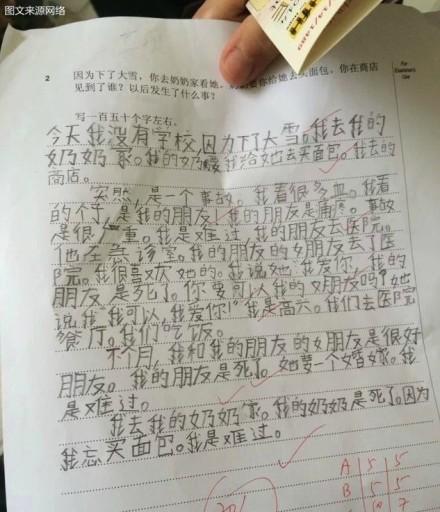 图文来源网络
2 因为下了大雪，你去奶奶家看她，奶奶要你给她去买面包，你在商店
见到了谁？以后发生了什么事？
For
Examiner's
Use
写一百五十个字左右。
今天我没有学校，因为下了大雪。我去我的
奶奶家。我的奶奶要我给她去买面包。我去的
商店。
突然，是一个事故。我看很多血。我看
的个子，是我的朋友！我的朋友是痛疼。事故
是很严重。我是难过。我的朋友去医院。
他在急诊室。我的朋友的女朋友去了医
院。我很喜欢她的。我说她，"我爱你，我的
朋友是死了。你要可以我的女朋友吗？"她
说我"我可以，我爱你！"我是高兴。我们去医院
餐厅。我们吃饭。
下个月，我和我的朋友的女朋友是很好
朋友。我的朋友是死了。她要一个婚嫁。我
是难过。
我去我的奶奶家。我的奶奶是死了。因为
我忘买面包。我是难过。
A 5 5
B 5 5
7